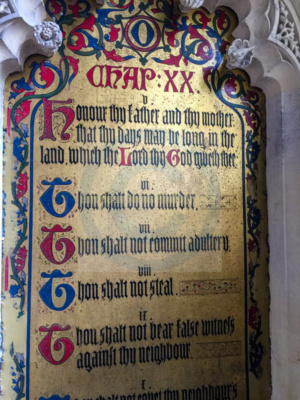 O
CHAP: XX.
v
Honour thy father and thy mother
that thy days may be long in the
land, which the Lord thy God giveth thee
vi
Thou shalt do no murder.
vii
Thou shalt not commit adultery.
viii
Thou shalt not steal.
ix
Thou shalt not bear false witness
against thy neighbour
x
Thou shalt not covet thy neighbour's